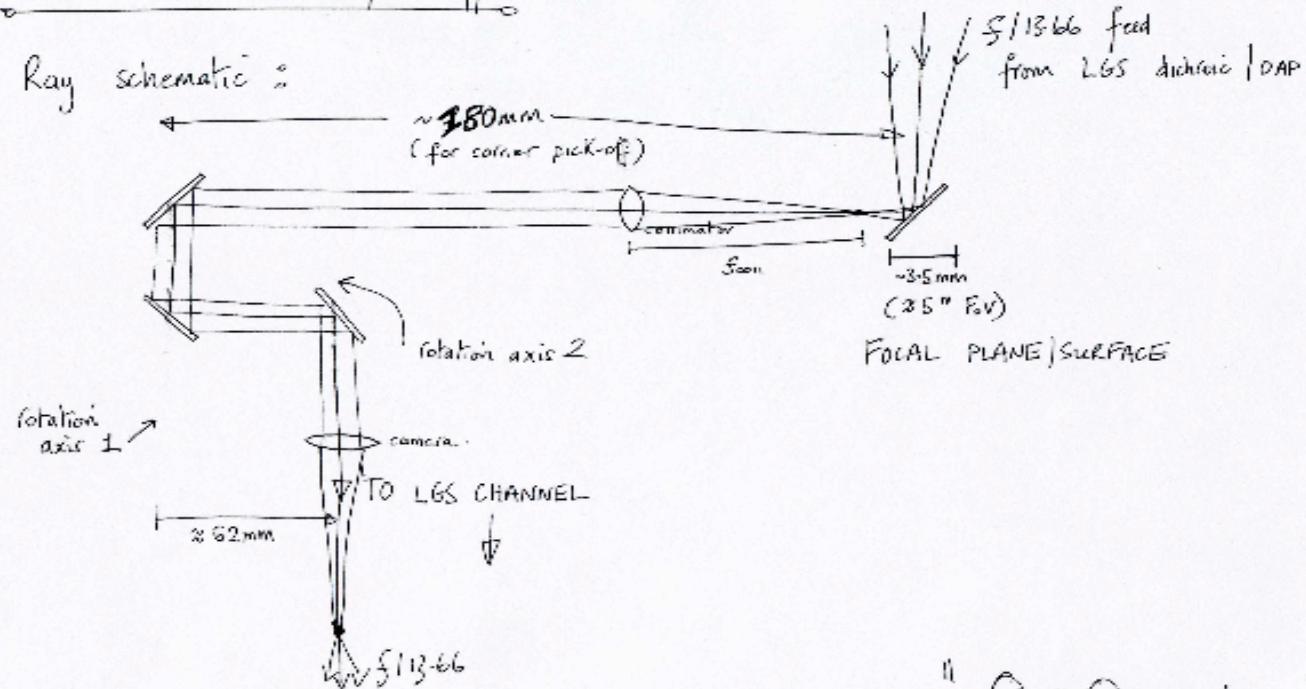 Ray schematic :
f/13.66 feed
from LGS dichroic / OAP
~180mm
(for corner pick-off)
collimator
fcoll
~3.5mm
(≈5" FoV)
FOCAL PLANE/SURFACE
rotation axis 2
rotation
axis 1
camera
TO LGS CHANNEL
≈62mm
f/13.66